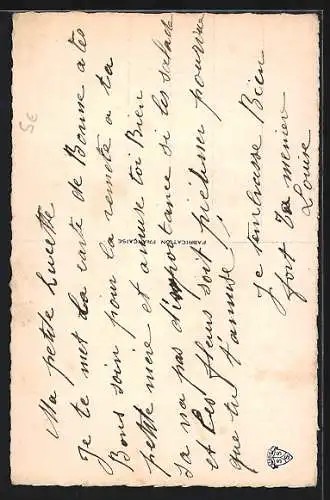 Ma petite Lucette
Je te met la carte de Bonne a tes
Bons soin pour la remetre a ta
petite mère et amuse toi Bien
sa na pas d'importance si les salade
et les fleurs soit piétiner pourvue
que tu t'amuse !
Je t'embrasse Bien
fort Ta
Louise
FABRICATION FRANÇAISE